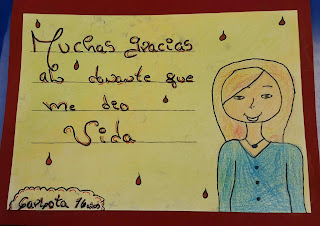 Muchas gracias
al donante que
me dio
Vida
Carlota 16 años